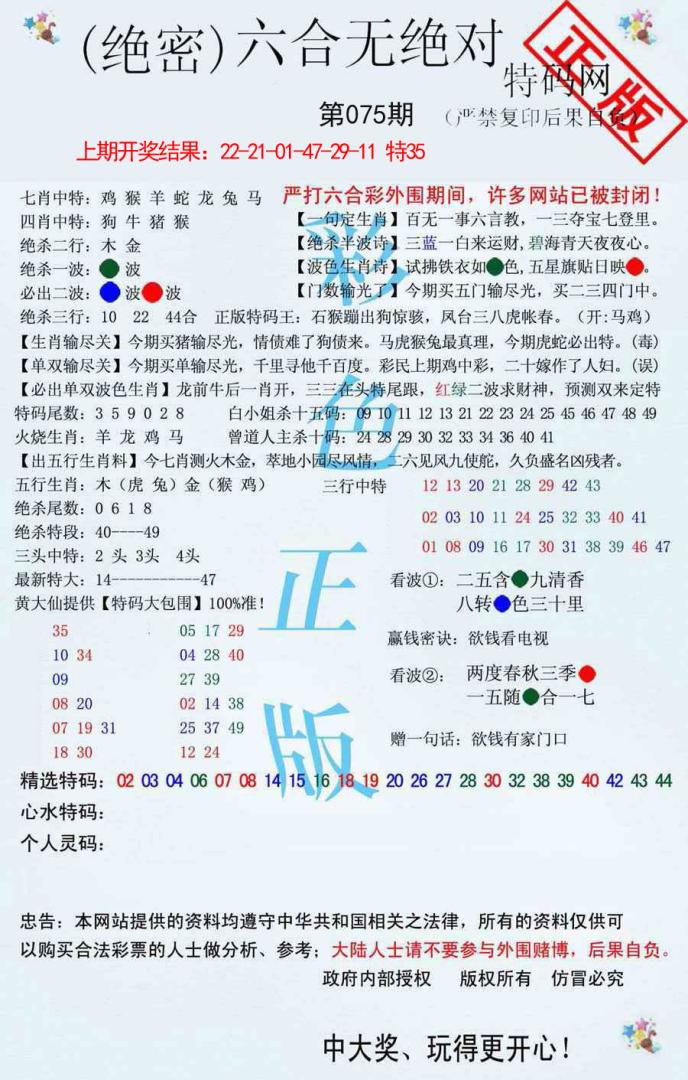 (绝密)六合无绝对
特码网
正版
第075期
(严禁复印后果自负)
上期开奖结果：22-21-01-47-29-11 特35
七肖中特：鸡 猴 羊 蛇 龙 兔 马
严打六合彩外围期间，许多网站已被封闭！
四肖中特：狗 牛 猪 猴
【一句定生肖】百无一事六言教，一三夺宝七登里。
绝杀二行：木 金
【绝杀半波诗】三蓝一白来运财，碧海青天夜夜心。
绝杀一波：波
【波色生肖诗】试拂铁衣如色,五星旗贴日映。
必出二波：波波
【门数输光了】今期买五门输尽光，买二三四门中。
绝杀三行：10 22 44合 正版特码王：石猴蹦出狗惊骇，凤台三八虎帐春。（开:马鸡）
【生肖输尽关】今期买猪输尽光，情债难了狗债来。马虎猴兔最真理，今期虎蛇必出特。(毒)
【单双输尽关】今期买单输尽光，千里寻他千百度。彩民上期鸡中彩，二十嫁作了人妇。(误)
【必出单双波色生肖】龙前牛后一肖开，三三在头特尾跟，红绿二波求财神，预测双来定特
特码尾数：3 5 9 0 2 8 白小姐杀十五码：09 10 11 12 13 21 22 23 24 25 45 46 47 48 49
火烧生肖：羊 龙 鸡 马 曾道人主杀十码：24 28 29 30 32 33 34 36 40 41
【出五行生肖料】今七肖测火木金，萃地小园尽风情，二六见风九使舵，久负盛名凶残者。
五行生肖：木（虎 兔）金（猴 鸡）
三行中特
12 13 20 21 28 29 42 43
绝杀尾数：0 6 1 8
02 03 10 11 24 25 32 33 40 41
绝杀特段：40----49
01 08 09 16 17 30 31 38 39 46 47
三头中特：2 头 3头 4头
最新特大：14-----------47
看波①：二五含九清香
八转色三十里
黄大仙提供【特码大包围】100%准！
35 05 17 29
赢钱密诀：欲钱看电视
10 34 04 28 40
09 27 39
看波②：两度春秋三季
一五随合一七
08 20 02 14 38
07 19 31 25 37 49
赠一句话：欲钱有家门口
18 30 12 24
精选特码：02 03 04 06 07 08 14 15 16 18 19 20 26 27 28 30 32 38 39 40 42 43 44
心水特码：
个人灵码：
彩色正版
忠告：本网站提供的资料均遵守中华共和国相关之法律，所有的资料仅供可
以购买合法彩票的人士做分析、参考；大陆人士请不要参与外围赌博，后果自负。
政府内部授权 版权所有 仿冒必究
中大奖、玩得更开心！